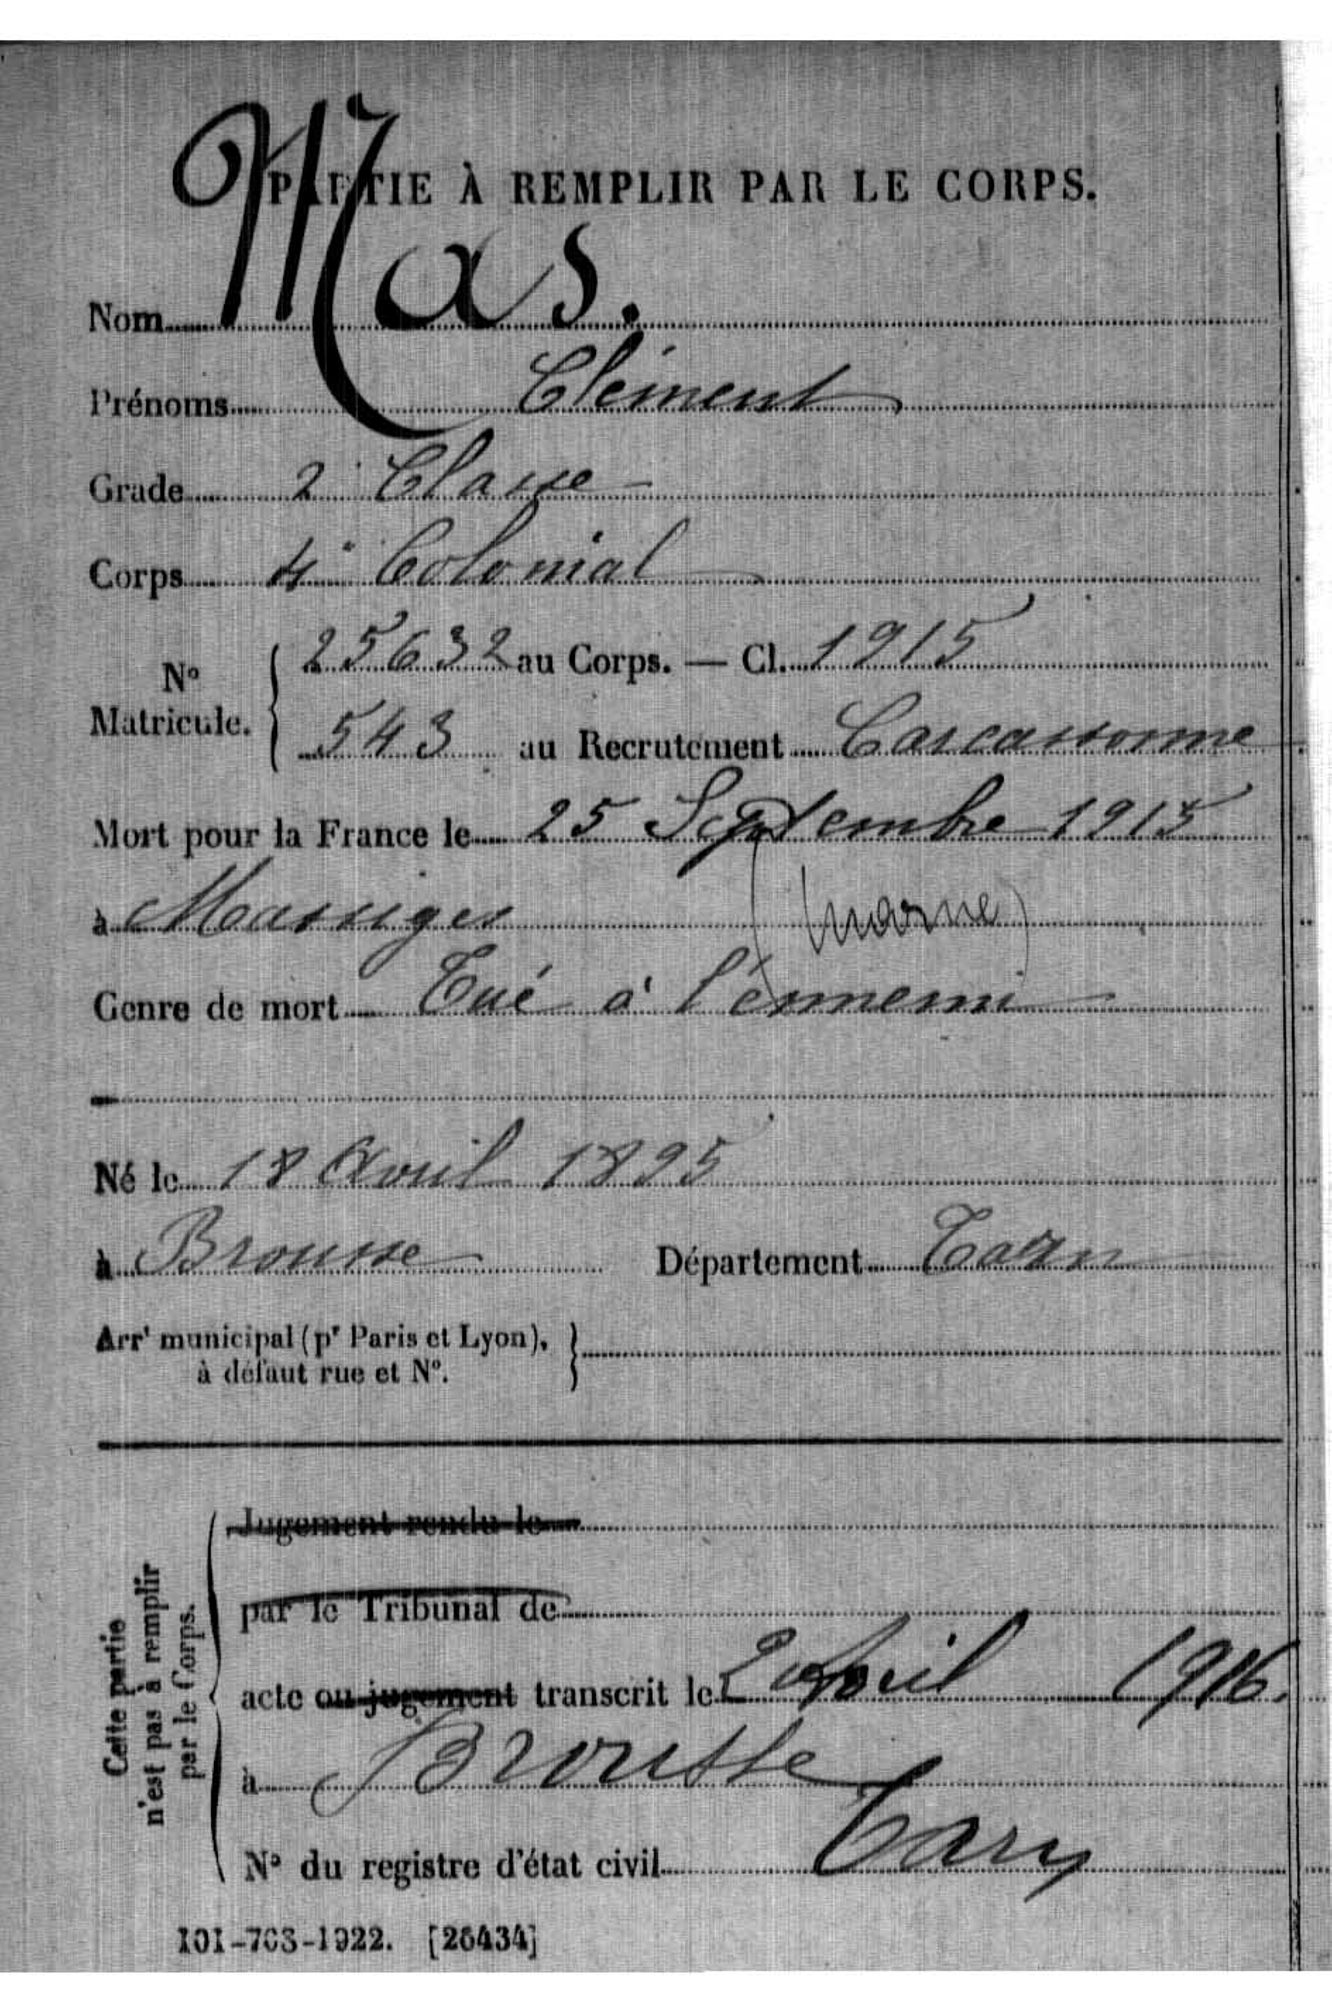 PARTIE À REMPLIR PAR LE CORPS.
Nom Mas.
Prénoms Clément
Grade 2e Classe
Corps 4e Colonial
No Matricule. { 25632 au Corps. — Cl. 1915
543 au Recrutement Carcassonne
Mort pour la France le 25 Septembre 1915
à Massiges (Marne)
Genre de mort Tué à l'énnemi
Né le 18 Avril 1895
à Brousse Département Tarn
Arrt municipal (pr Paris et Lyon), }
à défaut rue et No.
Cette partie
n'est pas à remplir
par le Corps.
Jugement rendu le
par le Tribunal de
acte ou jugement transcrit le 2 Avril 1916.
à Brousse
No du registre d'état civil Tarn
101-708-1922. [26434]